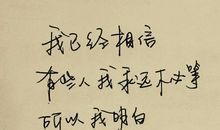 我已经相信
有些人我永远不必等
所以我明白